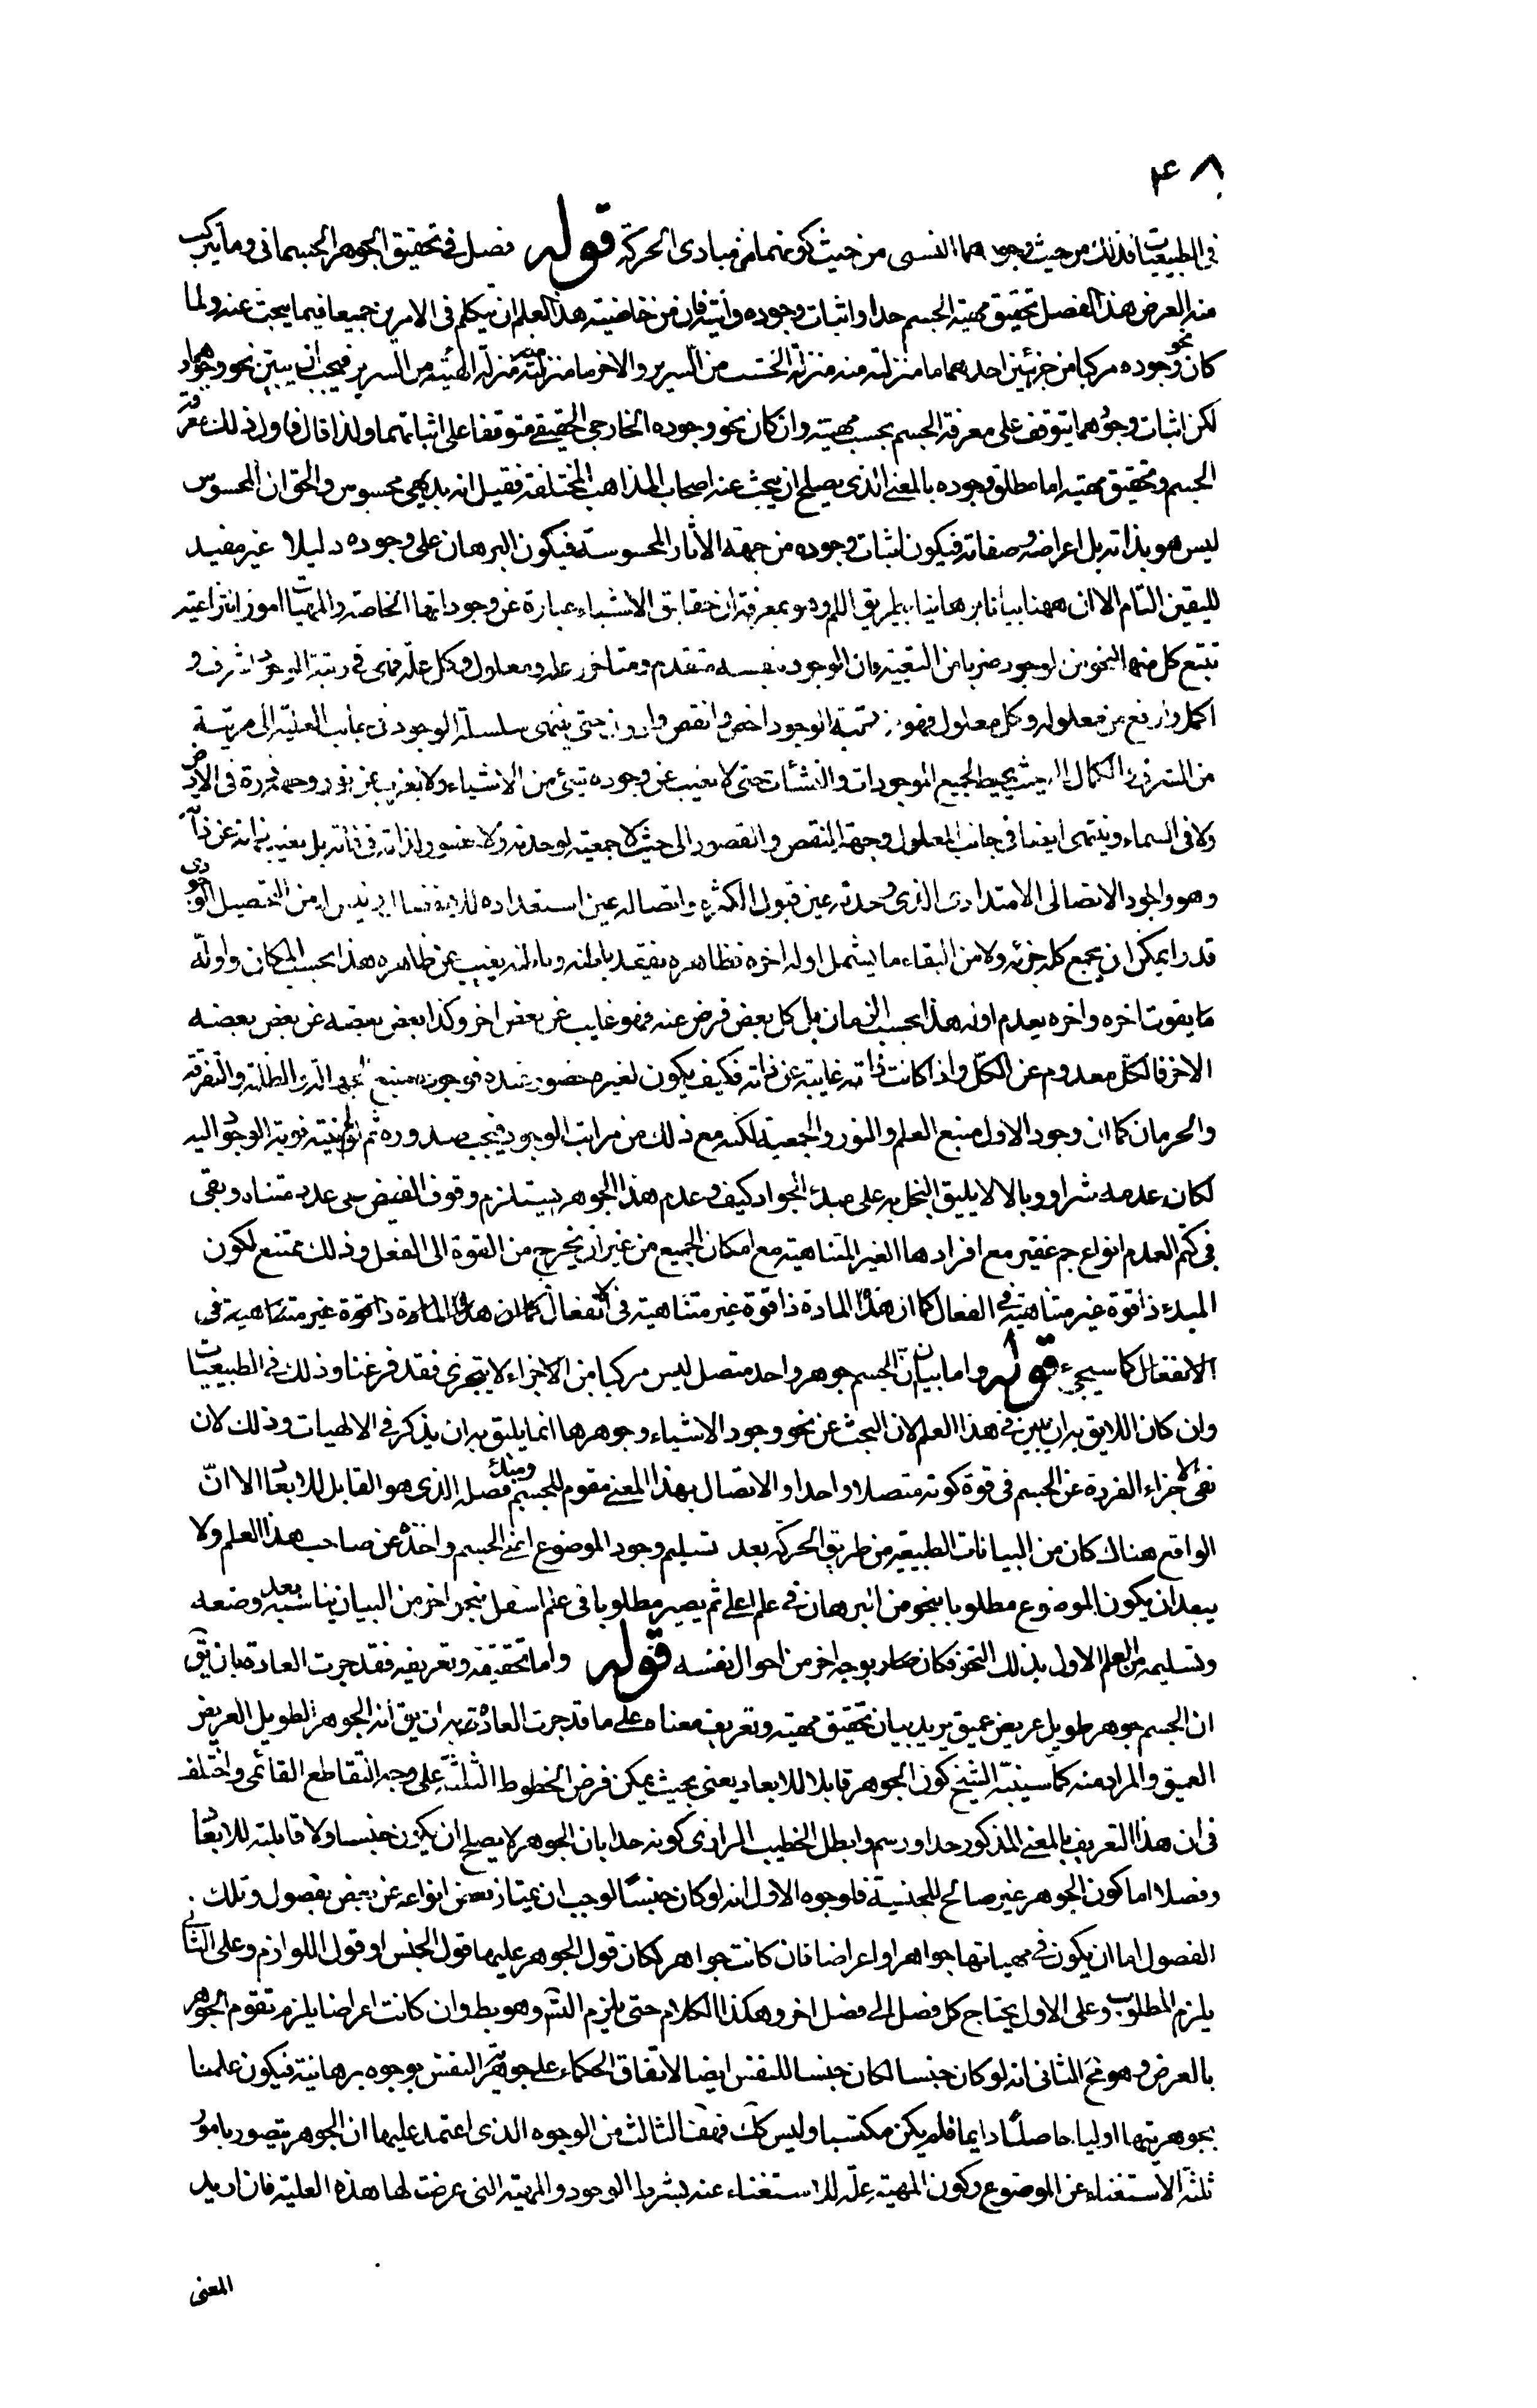 ۴۸
في الطبيعيات فذلك من حيث وجودهما النفسى من حيث كونهما من مبادى الحركة قوله فصل في تحقيق الجوهر الجسمانى وما يتركب
منه الغرض هذا الفصل تحقيق مهية الجسم حدا واثبات وجوده وانيته فان من خاصية هذا العلم ان يتكلم فى الامرين جميعا فيما يبحث عنه ولما
كان نحو وجوده مركبا من جزئين احدهما ما منزلته منه منزلة الخشب من السرير والاخر ما منزلته منه منزلة الهيئة من السرير فيجب ان يبين نحو وجودهما
لكن اثبات وجودهما يتوقف على معرفة الجسم بحسب مهيته وان كان نحو وجوده الخارجى الحقيقے متوقفا على اثباتهما ولذا قال فاول ذلك معرفة
الجسم وتحقيق مهيته اما مطلق وجوده بالمعنے الذى يصلح ان يبحث عنه اصحاب المذاهب المختلفة فقيل انه بديهى محسوس والحق ان المحسوس
ليس هو بذاته بل اعراضه وصفاته فيكون اثبات وجوده من جهة الاثار المحسوسة فيكون البرهان على وجوده دليلا غير مفيد
لليقين التام الا ان ههنا بيانا برهانيا بطريق اللم وهو بمعرفة ان حقايق الاشياء عبارة عن وجوداتها الخاصة والمهيات امور انتزاعية
تتبع كل منها النحو من لوجود ضربا من التبعية وان الوجود بنفسه متقدم ومتاخر علة ومعلول وكل علة فهى فى رتبة الوجود اشرف و
اكمل وارفع من معلوله وكل معلول فهو رتبة الوجود اخس وانقص وادون حتى ينتهى سلسلة الوجود فى جانب العلية الى مرتبة
من الشرف و الكمال الى حيث يحيط بجميع الموجودات والنشئات حتى لا يغيب عن وجوده شئ من الاشياء ولا يعزب عن نور وجوده ذرة فى الارض
ولا فى السماء وينتهى ايضا فى جانب المعلول وجهة النقص والقصور الى حيث لا جمعية لوحدته ولا حضور لذاته فى ذاته بل يغيب ذاته عن ذاته
وهو الوجود الاتصالى الامتدادى الذى وحدته عين قبول الكثرة واتصاله عين استعداده للانفصال من التحصيل الوجودى
قدر ايمكن ان يجمع كله جزئه ولا من البقاء ما يشمل اوله اخره فظاهره يفقد باطنه وباطنه يغيب عن ظاهره هذا بحسب المكان واولّه
ما يفوت اخره واخره يعدم اوله هذا بحسب الزمان بل كل بعض فرض عنه فهو غايب عن بعض اخر وكذا بعض بعضه عن بعض بعضه
الاخر فالكل معدوم عن الكل واذا كانت ذاته غايبة عن ذاته فكيف يكون لغيره حضور عنده فوجوده منبع الظلمة والتفرقة
والحرمان كما ان وجود الاول منبع العلم والنور والجمعية لكنه مع ذلك من مراتب الوجود فيجب صدوره ثم نوبة الوجود اليه
لكان عدمه شرا ووبالا لا يليق البخل به على مبدئ الجواد كيف وعدم هذا الجوهر يستلزم وقوف الفيض على عدد متناه وبقى
فى كتم العدم انواع جم غفير مع افرادها الغير المتناهية مع امكان الجميع من غير ان يخرج من القوة الى الفعل وذلك ممتنع لكون
المبدء ذا قوة غير متناهية فى الفعال كما ان هذه المادة ذا قوة غير متناهية فى الانفعال كما ان هذه المادة ذا قوة غير متناهية فى
الانفعال كما سيجئ قوله واما بيان ان الجسم جوهر واحد متصل ليس مركبا من الاجزاء لا يتجزى فقد فرغنا وذلك فى الطبيعيات
وان كان اللايق به ان يبين فى هذا العلم لان البحث عن نحو وجود الاشياء وجوهرها انما يليق به ان يذكر فى الالهيات وذلك لان
نفى الاجزاء الفردة عن الجسم فى قوة كونه متصلا واحدا والاتصال بهذا المعنى مقوم للجسم ومبدء فصله الذى هو القابل للابعاد الا انّ
الواقع هناك كان من البيانات الطبيعية من طريق الحركة بعد تسليم وجود الموضوع اعنے الجسم واخذه عن صاحب هذا العلم ولا
يبعد ان يكون الموضوع مطلوبا بنحو من البرهان فى علم اعلى ثم يصير مطلوبا فى علم اسفل بنحو اخر من البيان يناسبه بعد وضعه
وتسليمه من العلم الاول بذلك النحو فكان صار بوجه اخر من احوال نفسه قوله واما تحقيقه وتعريفه فقد جرت العادة بان يق
ان الجسم جوهر طويل عريض عميق يريد بيان تحقيق مهيته وتعريف معناه على ما قد جرت العادة به ان يق انه الجوهر الطويل العريض
العميق والمراد منه كما سينبّه الشيخ كون الجوهر قابلا للابعاد يعنى بحيث يمكن فرض الخطوط الثلثة على وجه التقاطع القائمى واختلف
فى ان هذا التعريف بالمعنى المذكور حد او رسم وابطل الخطيب الرازى كونه حدا بان الجوهر لا يصلح ان يكون جنسا ولا قابلية للابعاد
وفصلا اما كون الجوهر غير صالح للجنسية فلوجوه الاول انه لو كان جنسًا لوجب ان يمتاز بعض انواعه عن بعض بفصول وتلك
الفصول اما ان يكون فى مهياتها جواهر او اعراضا فان كانت جواهر لكان قول الجوهر عليها قول الجنس او قول اللوازم وعلى الثانى
يلزم المطلوب وعلى الاول يحتاج كل فصل الى فصل اخر وهكذا الكلام حتى يلزم التس وهو بط وان كانت اعراضا يلزم تقوم الجوهر
بالعرض وهو مح الثانى انه لو كان جنسا لكان جنسا للنفس ايضا لاتفاق الحكماء على جوهرية النفس بوجوه برهانية فيكون علمنا
بجوهريتها اوليا حاصلًا دايما فلم يكن مكتسبا وليس كك فهف الثالث من الوجوه الذى اعتمد عليها ان الجوهر يتصور بامور
ثلثة الاستغناء عن الموضوع وكون المهية علّة للاستغناء عنه بشرط الوجود والمهية التى عرضت لها هذه العلية فان اريد
المعنى